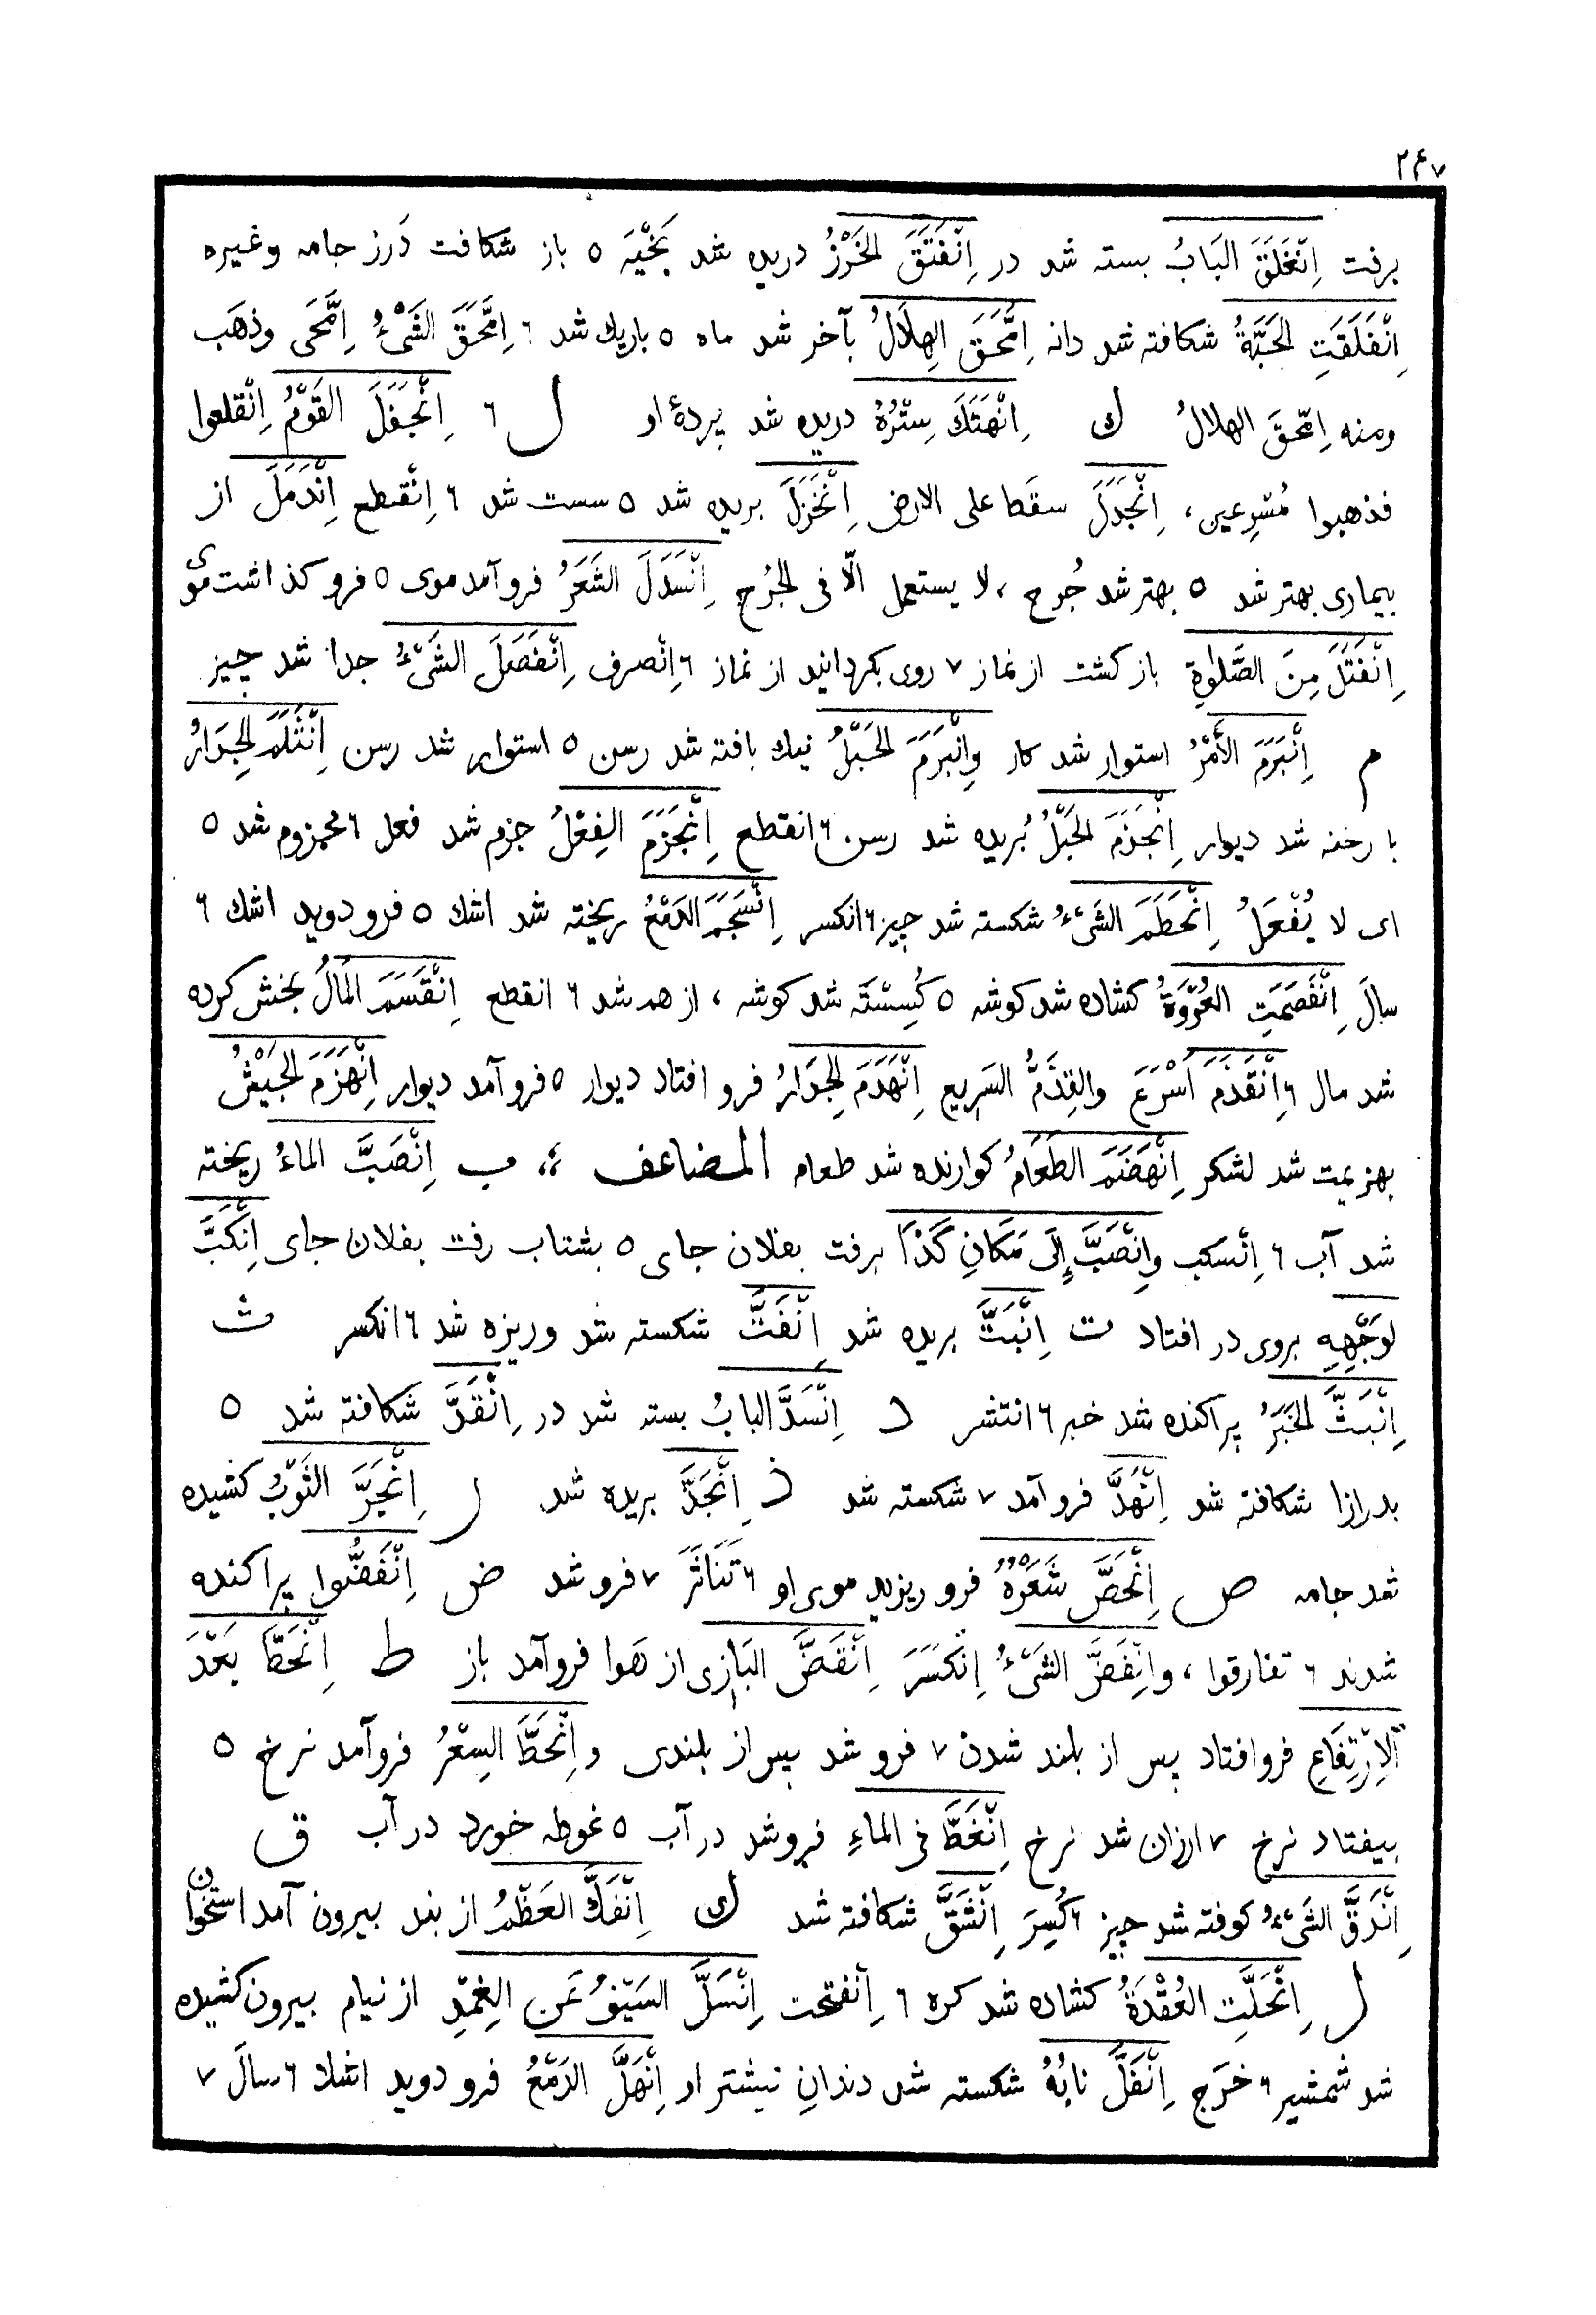 ۲۴۷
برفت اِنْغَلَقَ البَابُ بسته شد در اِنْفَتَقَ الخَرْزُ دریده شد بَخْیَه ٥ باز شکافت دَرز جامه وغیره
اِنْفَلَقَتِ الحَبَّةُ شکافته شد دانه اِمَّحَقَ الهِلَالُ بآخر شد ماه ٥ باریك شد ٦ اِمَّحَقَ الشَیْءُ اِمَّحَی وذهَب
ومنه اِمّحقَ الهلالُ ك اِنْهَتَكَ سِتْرُهُ دریده شد پردهٔ او ل ٦ اِنْجَفَلَ القَوْمُ اِنْقلعوا
فذهبوا مُسْرِعین ، اِنْجَدَلَ سقَط علی الارض اِنْخَزَلَ بریده شد ٥ سست شد ٦ اِنْقطع اِنْدَمَلَ از
بیماری بهتر شد ٥ بهتر شد جُرح ، لا یستعمل الّا فی الجُرْحِ اِنْسَدَلَ الشَعَرُ فرو آمد موی ٥ فرو کذاشت موی
اِنْفَتَلَ مِنَ الصَّلوٰةِ باز کشت از نماز ٧ روی بکردانید از نماز ٦ اِنْصرف اِنْفَصَلَ الشَیْءُ جدا شد چیز
م اِنْبَرَمَ الأَمْرُ استوار شد کار وِانْبَرَمَ الحَبْلُ نیك بافته شد رسن ٥ استوار شد رسن اِنْثَلَمَ الجِدَارُ
با رخنه شد دیوار اِنْجَذَمَ الحَبْلُ بُریده شد رسن ٦ انقطع اِنْجَزَمَ الفِعْلُ جزم شد فعل ٦ مجزوم شد ٥
ای لا یُفْعَلُ اِنْحَطَمَ الشَیْءُ شکسته شد چیز ٦ انکسر اِنْسَجَمَ الدَمْعُ ریخته شد اشك ٥ فرو دوید اشك ٦
سالَ اِنْفَصَمَتِ العُرْوَةُ کشاده شد کوشه ٥ کُسِسْتَه شد کوشه ، از هم شد ٦ انقطع اِنْقَسَمَ المَالُ بخش کرده
شد مال ٦ اِنْقَذَمَ اَسْرَعَ والقِذَمُّ السَرِیع اِنْهَدَمَ الجِدَارُ فرو افتاد دیوار ٥ فرو آمد دیوار اِنْهَزَمَ الجَیْشُ
بهزیمت شد لشکر اِنْهَضَمَ الطَعَامُ کوارنده شد طعام المضاعف ؛، ب اِنْصَبَّ الماءُ ریخته
شد آب ٦ اِنْسکب وِانْصَبَّ اِلَی مَکَانِ کَذَا برفت بفلان جای ٥ بشتاب رفت بفلان جای اِنْکَبَّ
لِوَجْهِهِ بروی در افتاد ت اِنْبَتَّ بریده شد اِنْفَتَّ شکسته شد وریزه شد ٦ انکسر ث
اِنْبَثَّ الخَبَرُ پراکنده شد خبر ٦ انتشر د اِنْسَدَّ البابُ بسته شد در اِنْقَدَّ شکافته شد ٥
بدرازا شکافته شد اِنْهَدَّ فرو آمد ٧ شکسته شد ذ اِنْجَذَّ بریده شد ر اِنْجَرَّ الثَوْبُ کشیده
شد جامه ص اِنْحَصَّ شَعَرُهُ فرو ریزید موی او ٦ تَنَاثَرَ ٧ فرو شد ض اِنْفَضُّوا پراکنده
شدند ٦ تفارقوا ، وانْفَضَّ الشَیْءُ اِنْکَسَرَ اِنْقَضَّ البَازِی از هَوا فرو آمد باز ط اِنْحَطَّ بَعْدَ
الاِرْتِفَاعِ فرو افتاد پس از بلند شدن ٧ فرو شد پس از بلندی واِنْحَطَّ السِعْرُ فرو آمد نرخ ٥
بیفتاد نرخ ٧ ارزان شد نرخ اِنْغَطَّ فی الماءِ فروشد در آب ٥ غوطه خورد در آب ق
اِنْدَقَّ الشَیْءُ کوفته شد چیز ٦ کُسِرَ اِنْشَقَّ شکافته شد ك اِنْفَكَّ العَظْمُ از بند بیرون آمد استخوان
ل اِنْحَلَّتِ العُقْدَةُ کشاده شد کره ٦ اِنْفتحت اِنْسَلَّ السَیْفُ عَن الغِمْدِ از نیام بیرون کشیده
شد شمشیر ٦ خرَج اِنْفَلَّ نابُهُ شکسته شد دندانِ نیشتر او اِنْهَلَّ الدَمْعُ فرو دوید اشك ٦ سالَ ٧